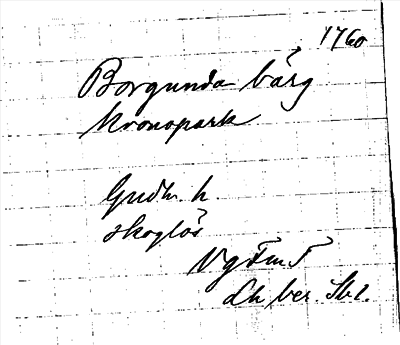 1760
Borgunda bärg
Kronopark
Gudh. h.
skoglös
Vg Fm T
Lh ber.